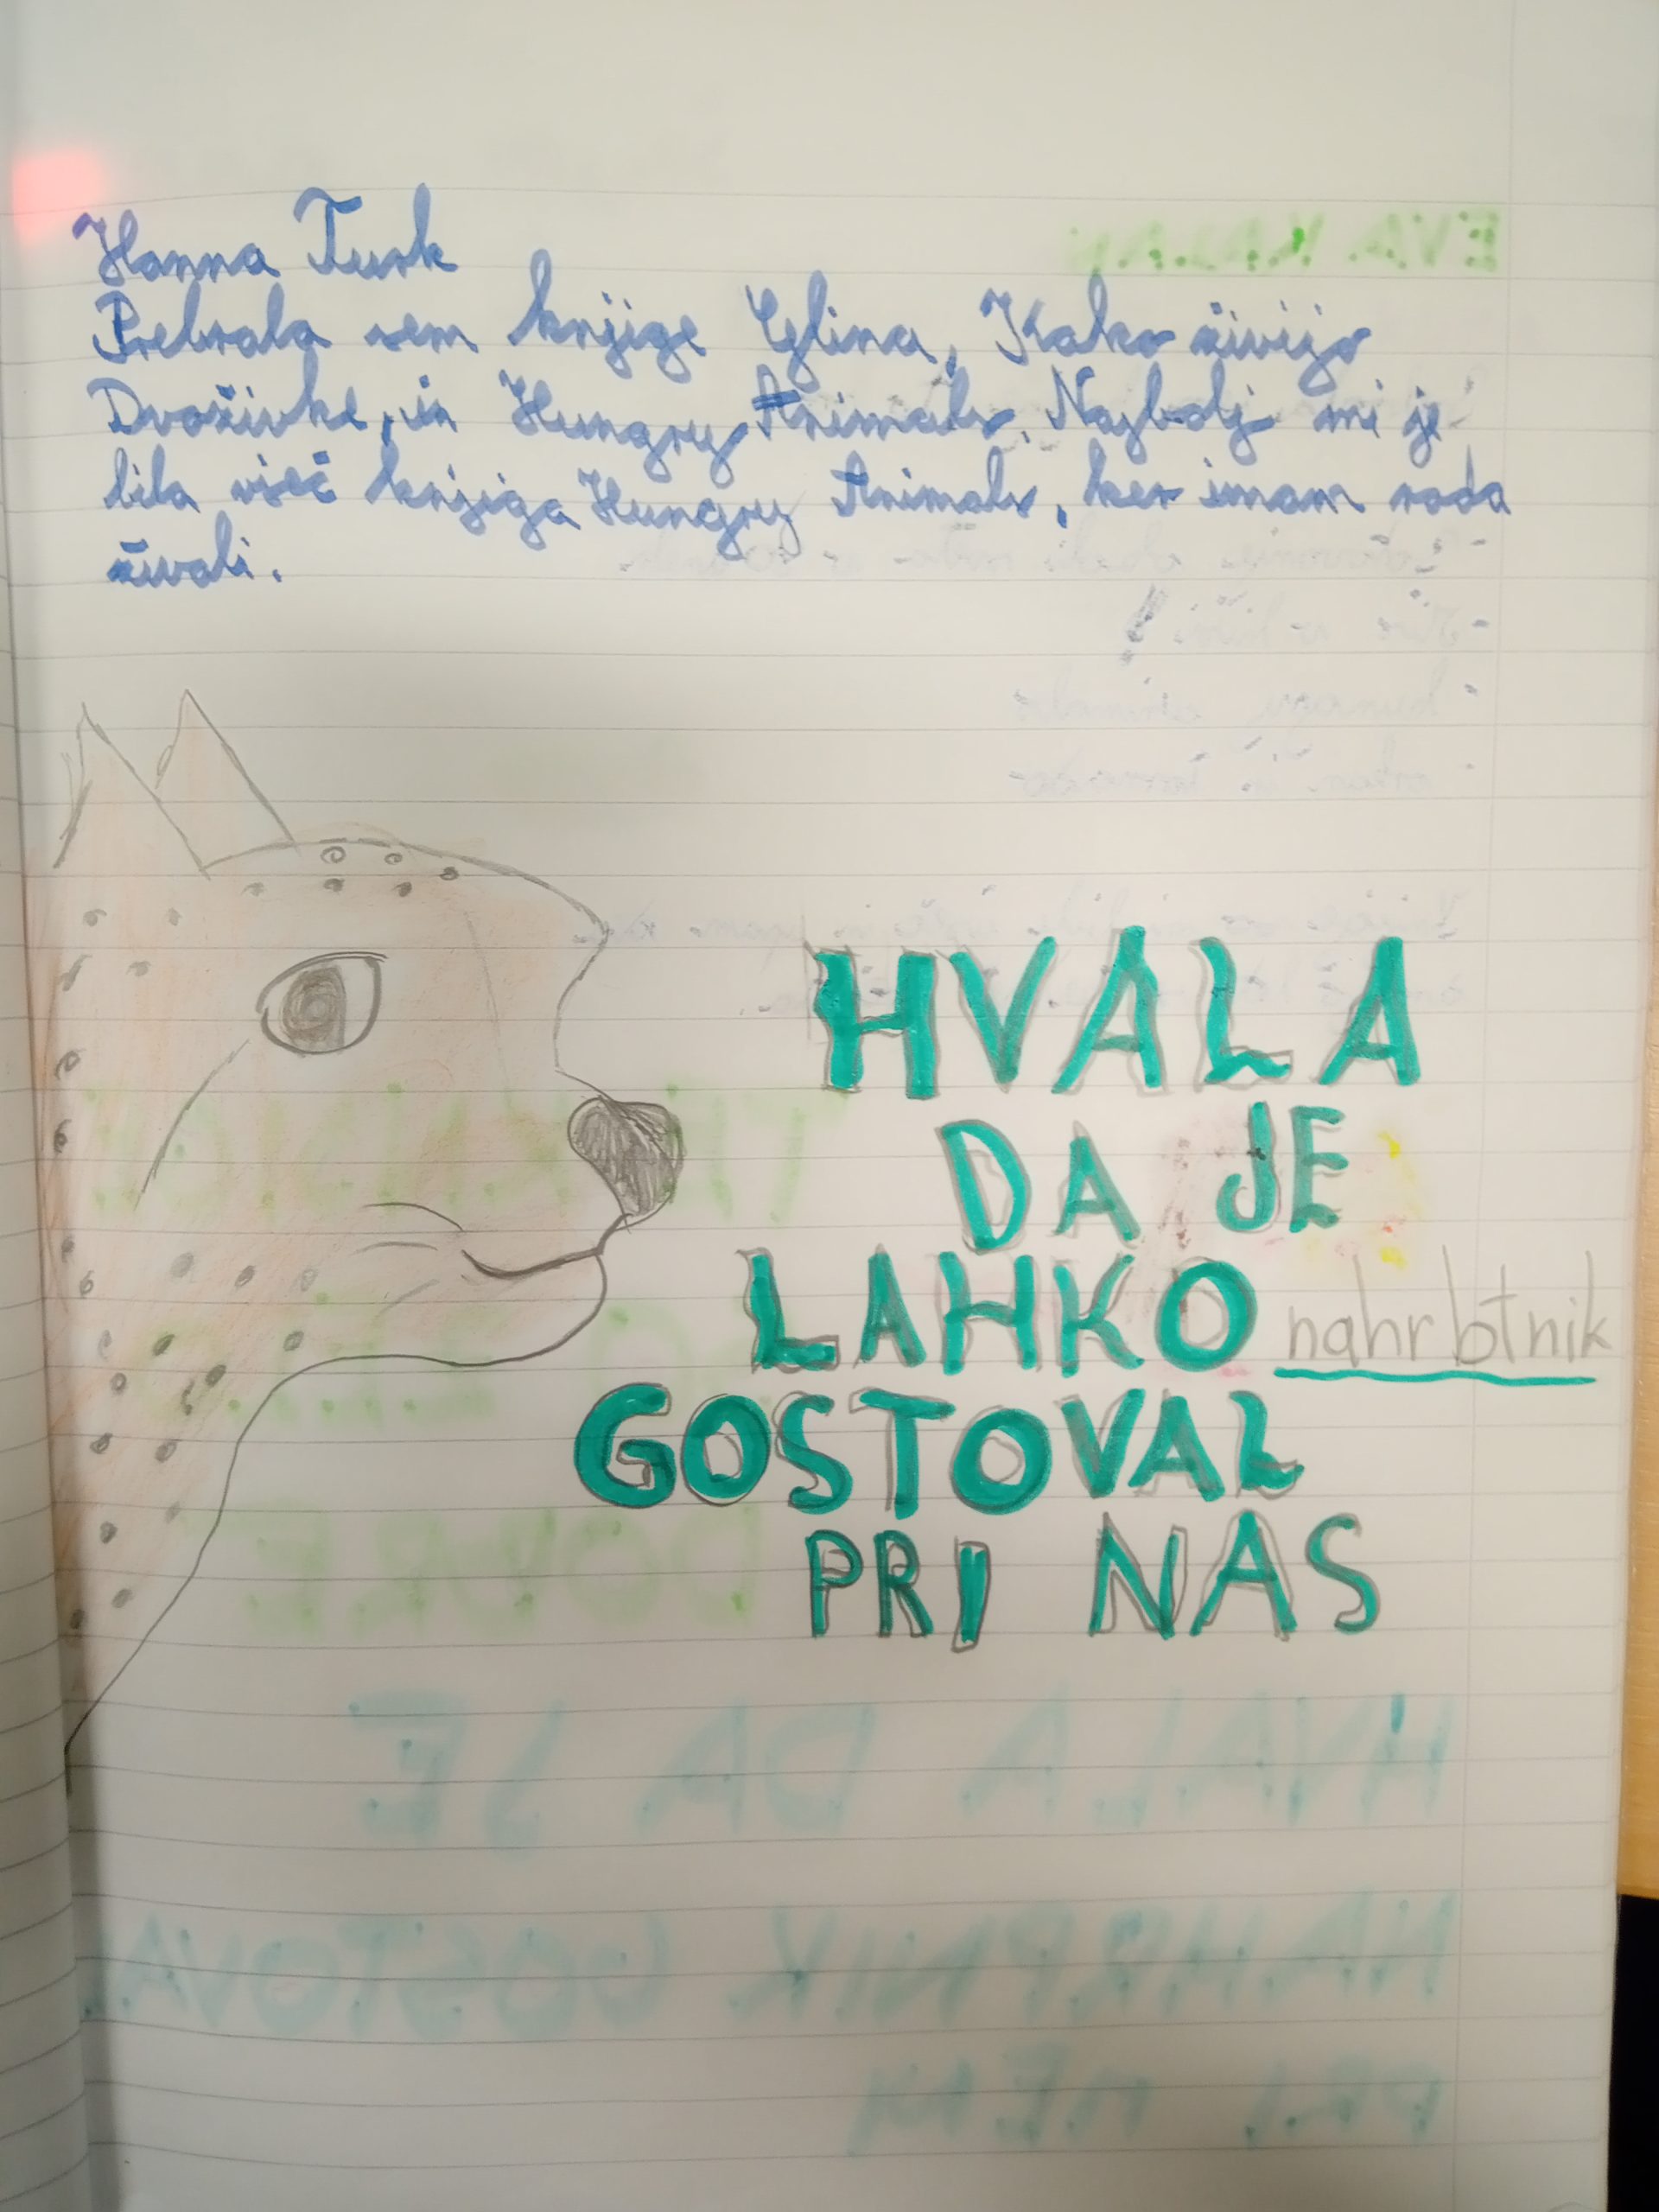 Hanna Turk
Prebrala sem knjige Glina, Kako živijo
Dvoživke, in Hungry Animals. Najbolj mi je
bila všeč knjiga Hungry Animals, ker imam rada
živali.
HVALA
DA JE
LAHKO nahrbtnik
GOSTOVAL
PRI NAS